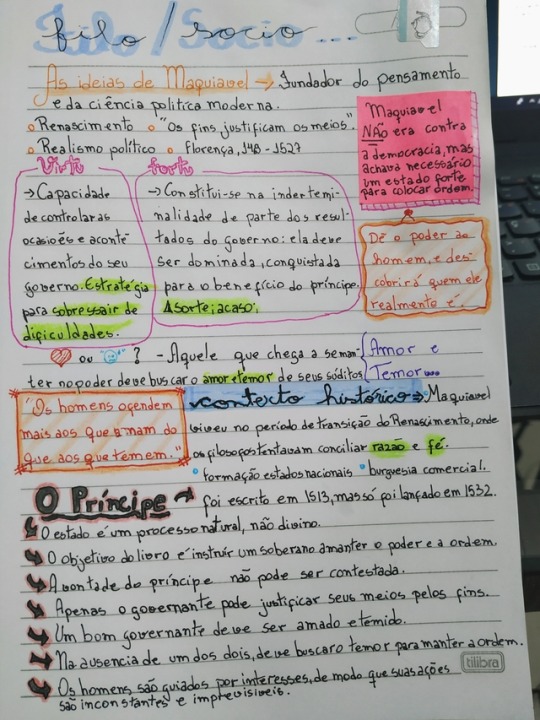 filo/socio...
As ideias de Maquiavel → fundador do pensamento
e da ciência política moderna.
Renascimento "Os fins justificam os meios".
Realismo político Florença, 148 - 1527
Maquiavel
NÃO era contra
a democracia, mas
achava necessário
um estado forte
para colocar ordem.
Virtu
→ Capacidade
de controlar as
ocasiões e aconte-
cimentos do seu
governo. Estratégia
para sobressair de
dificuldades.
fortu
→ Constitui-se na indertemi-
nalidade de parte dos resul-
tados do governo: ela deve
ser dominada, conquistada
para o benefício do príncipe.
A sorte; acaso;
Dê o poder ao
homem, e des-
cobrirá quem ele
realmente é
ou ? - Aquele que chega a seman-
ter no poder deve buscar o amor e temor de seus súditos
Amor e
Temor...
"Os homens ofendem
mais aos que amam do
que aos que temem."
contexto histórico → Maquiavel
viveu no período de transição do Renascimento, onde
os filosofos tentavam conciliar razão e fé.
formação estados nacionais burguesia comercial.
O Príncipe → foi escrito em 1513, mas só foi lançado em 1532.
O estado é um processo natural, não divino.
O objetivo do livro é instruir um soberano a manter o poder e a ordem.
A vontade do príncipe não pode ser contestada.
Apenas o governante pode justificar seus meios pelos fins.
Um bom governante deve ser amado e temido.
Na ausencia de um dos dois, deve buscar o temor para manter a ordem.
Os homens são guiados por interesses, de modo que suas ações
são inconstantes e imprevisíveis.
tilibra